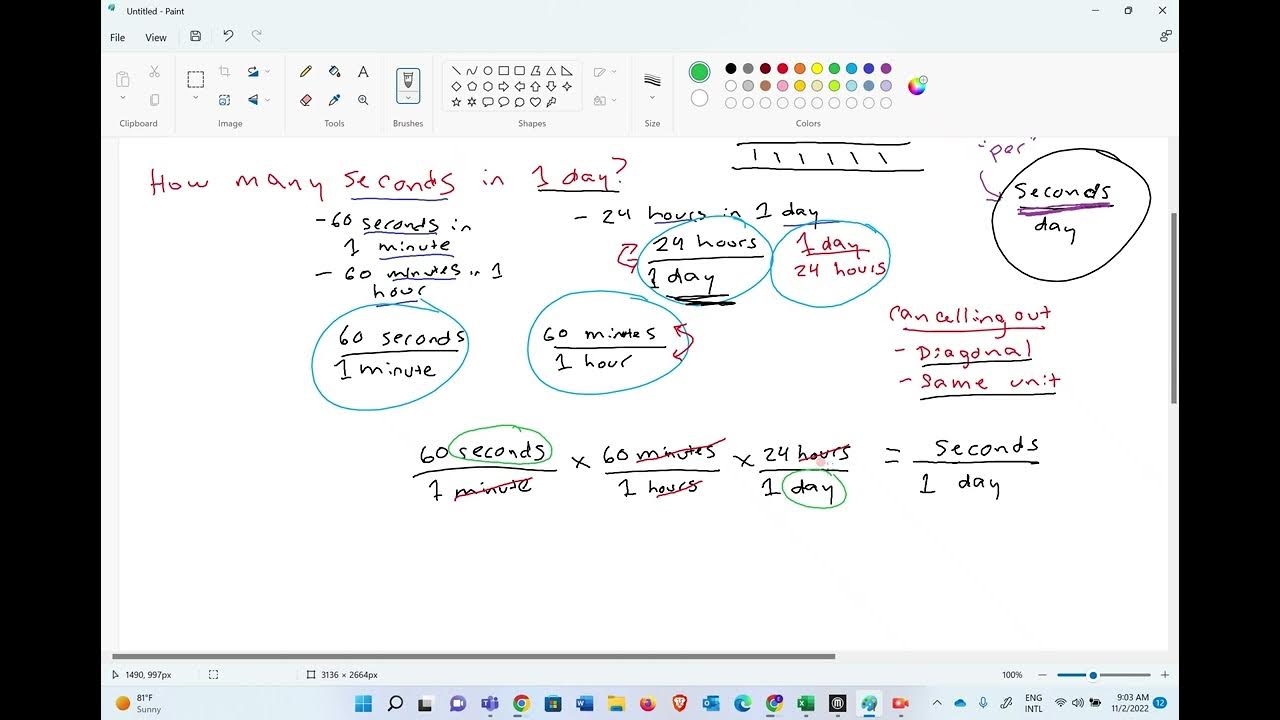 Untitled - Paint
File View
Clipboard
Image
Tools
Brushes
Shapes
Size
Colors
A
"per"
How many seconds in 1 day?
seconds
day
- 60 seconds in
1 minute
- 60 minutes in 1
hour
- 24 hours in 1 day
24 hours
1 day
1 day
24 hours
60 seconds
1 minute
60 minutes
1 hour
Cancelling out
- Diagonal
- Same unit
60 seconds × 60 minutes × 24 hours = seconds
1 minute 1 hours 1 day 1 day
1490, 997px
3136 × 2664px
100%
81°F
Sunny
ENG
INTL
9:03 AM
11/2/2022
12